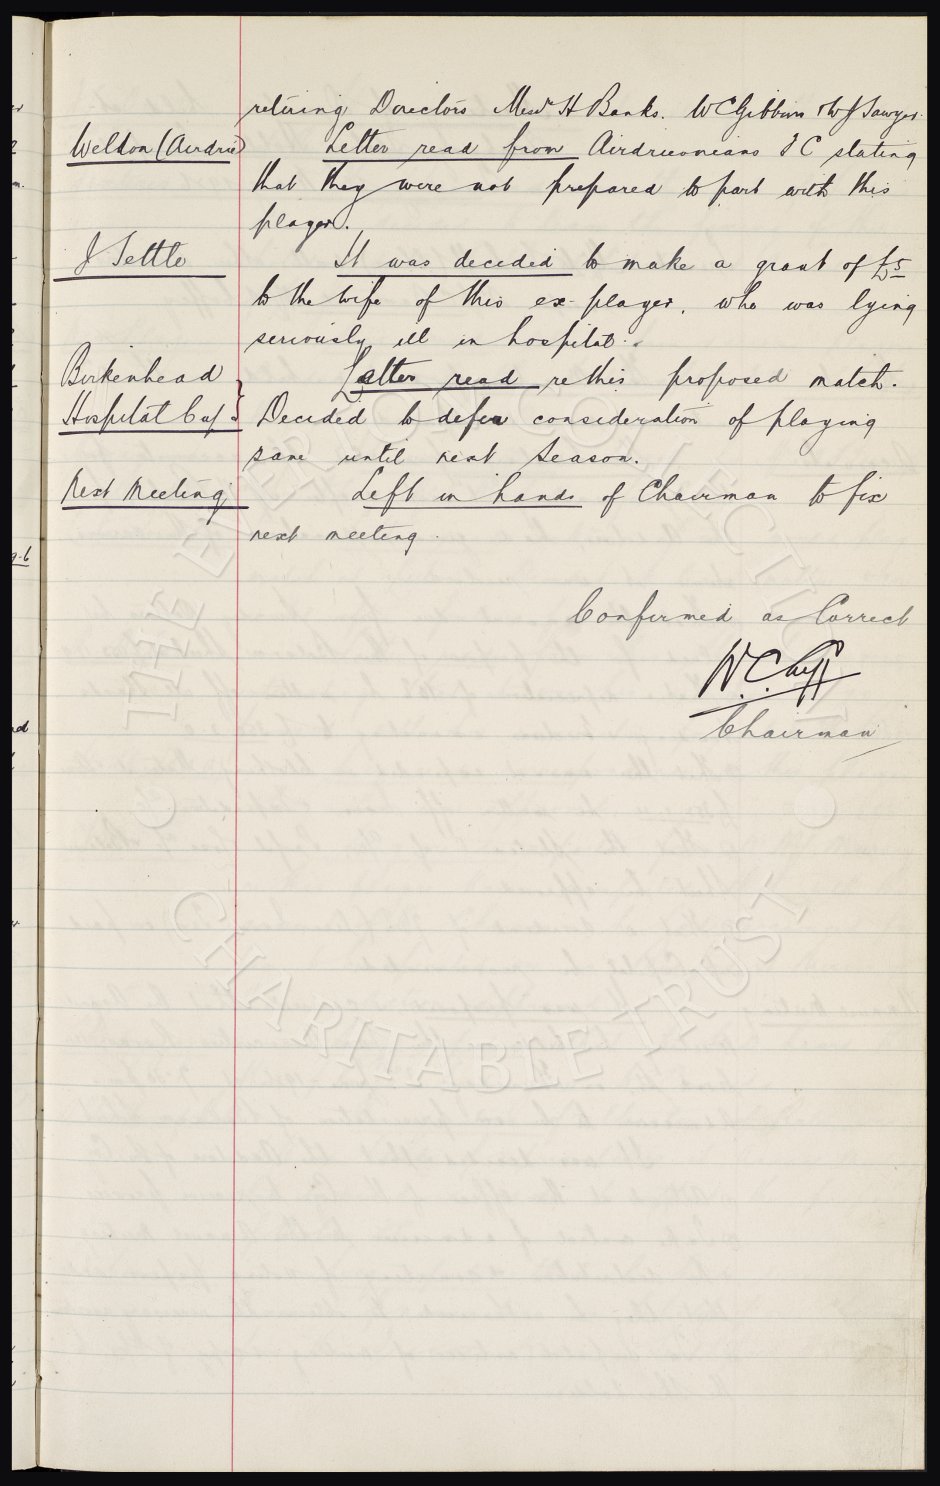 retiring Directors Messrs H Banks. W C Gibbins & W J Sawyer.
Weldon (Airdrie) Letter read from Airdrieonians F C stating
that they were not prepared to part with this
player.
J Settle It was decided to make a grant of £5
to the wife of this ex-player, who was lying
seriously ill in hospital.
Birkenhead Letter read re this proposed match.
Hospital Cup Decided to defer consideration of playing
same until next season.
Next Meeting Left in hands of Chairman to fix
next meeting.
Confirmed as Correct
W. C. Cuff
Chairman
THE EVERTON COLLECTION
CHARITABLE TRUST